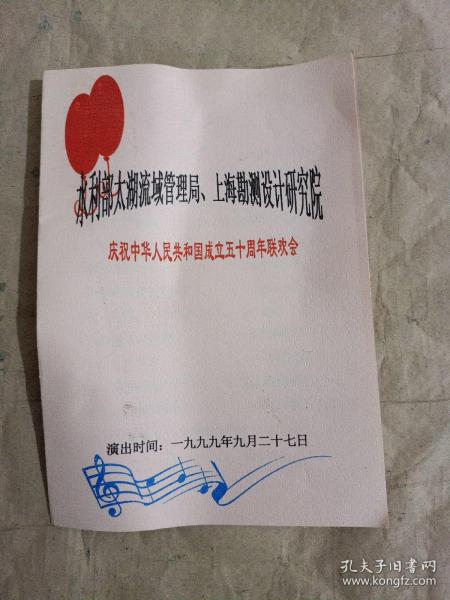 水利部太湖流域管理局、上海勘测设计研究院
庆祝中华人民共和国成立五十周年联欢会
演出时间：一九九九年九月二十七日
孔夫子旧书网
www.kongfz.com